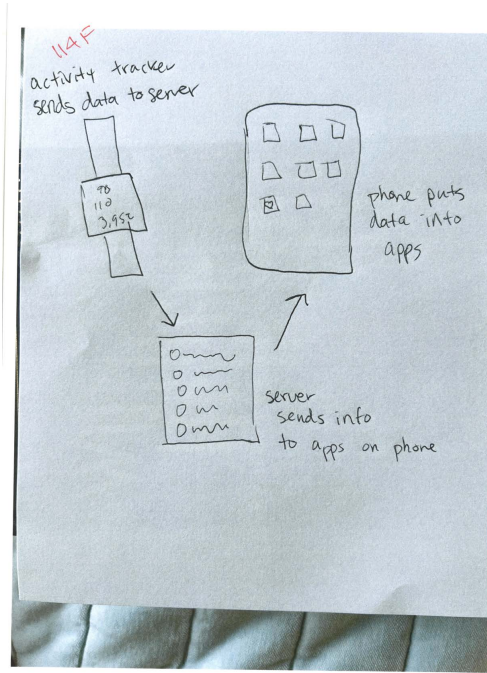 114F
activity tracker
sends data to server
110
phone puts
data into
apps
server
sends info
to apps on phone